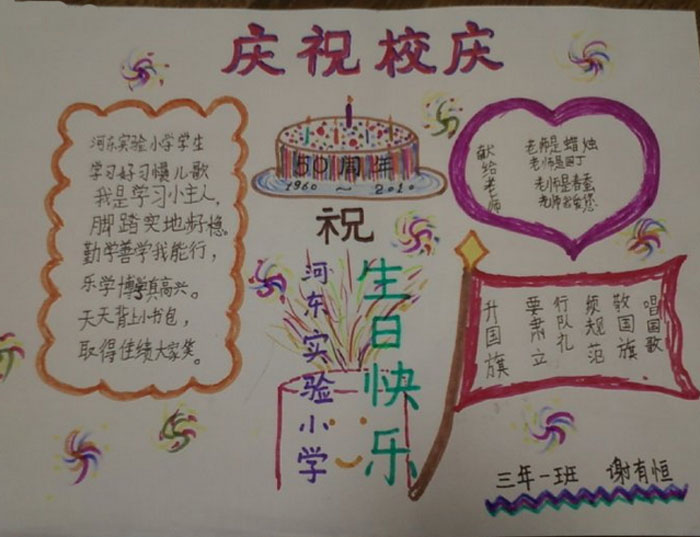 庆祝校庆
河东实验小学学生
学习好习惯儿歌
我是学习小主人，
脚踏实地好稳。
勤学善学我能行，
乐学博学真高兴。
天天背上小书包，
取得佳绩大家笑。
50周年
1960 ～ 2010
祝
河东实验小学
生日快乐
献给老师
老师是蜡烛
老师是园丁
老师是春蚕
老师我爱您
升国旗
要肃立
行队礼
须规范
敬国旗
唱国歌
三年一班 谢有恒